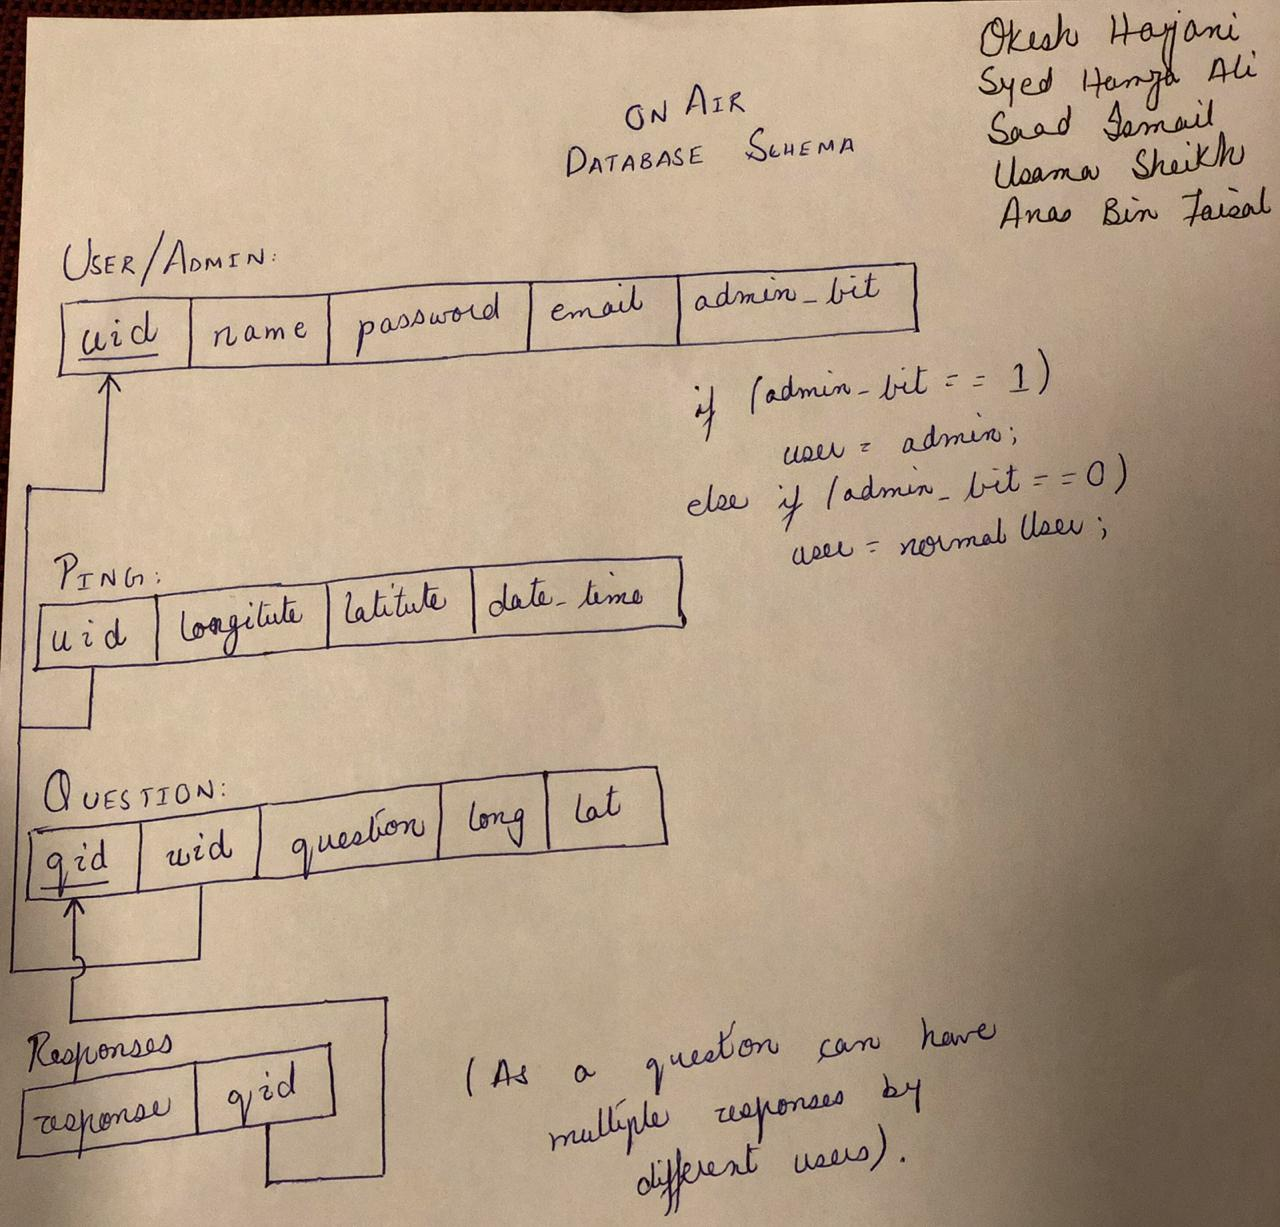 Okesh Harjani
Syed Hamza Ali
Saad Ismail
Usama Sheikh
Anas Bin Faisal
ON AIR
DATABASE SCHEMA
USER/ADMIN:
uid name password email admin_bit
if (admin_bit == 1)
user = admin;
else if (admin_bit == 0)
user = normal User;
PING:
uid longitute latitute date_time
QUESTION:
qid uid question long lat
Responses
response qid
(As a question can have
multiple responses by
different users).